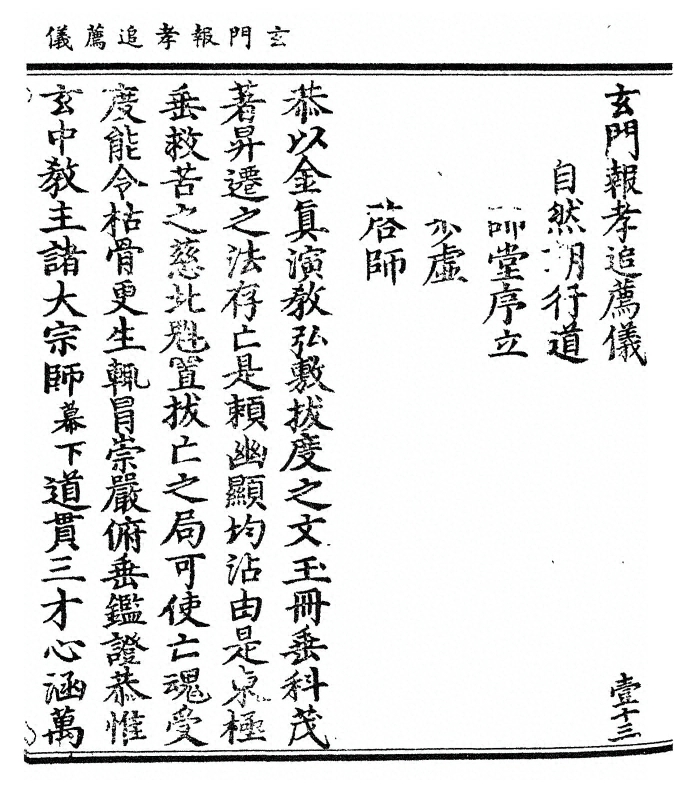 玄門報孝追薦儀
玄門報孝追薦儀 壹十三
自然朝行道
師堂序立
步虛
啓師
恭以金眞演教弘敷拔度之文玉冊垂科茂
著昇遷之法存亡是賴幽顯均沾由是東極
垂救苦之慈北魁置拔亡之局可使亡魂受
度能令枯骨更生輒冒崇嚴俯垂鑑證恭惟
玄中教主諸大宗師幕下道貫三才心涵萬